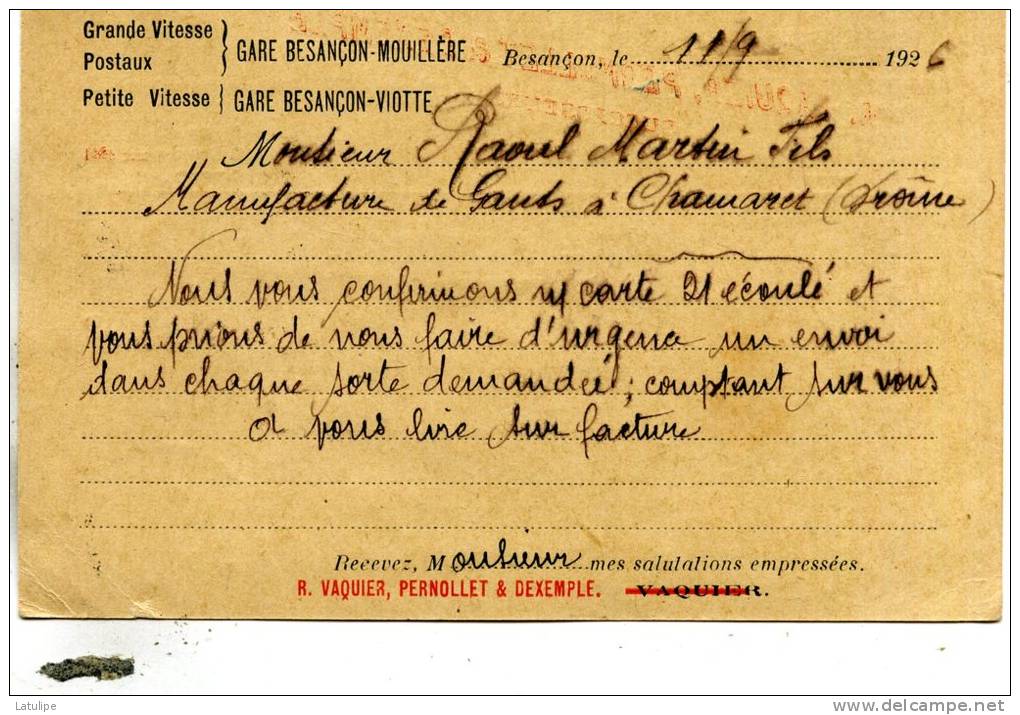 Grande Vitesse
Postaux
GARE BESANÇON-MOUILLÈRE
Besançon, le 11/9 1926
Petite Vitesse
GARE BESANÇON-VIOTTE
Monsieur Raoul Martin Fils
Manufacture de Gants à Chamaret (Drôme)
Nous vous confirmons n/ carte 21 écoulé et
vous prions de nous faire d'urgence un envoi
dans chaque sorte demandée ; comptant sur vous
à vous lire sur facture
Recevez, Monsieur mes salutations empressées.
R. VAQUIER, PERNOLLET & DEXEMPLE. VAQUIER.
Latulipe
www.delcampe.net